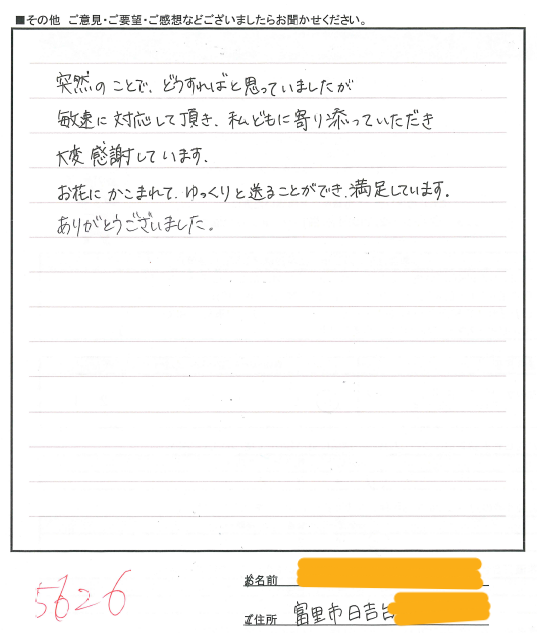 ■その他　ご意見・ご要望・ご感想などございましたらお聞かせください。
突然のことで、どうすればと思っていましたが
敏速に対応して頂き、私どもに寄り添っていただき
大変感謝しています。
お花にかこまれて、ゆっくりと送ることができ、満足しています。
ありがとうございました。
5626
お名前
ご住所　富里市日吉台